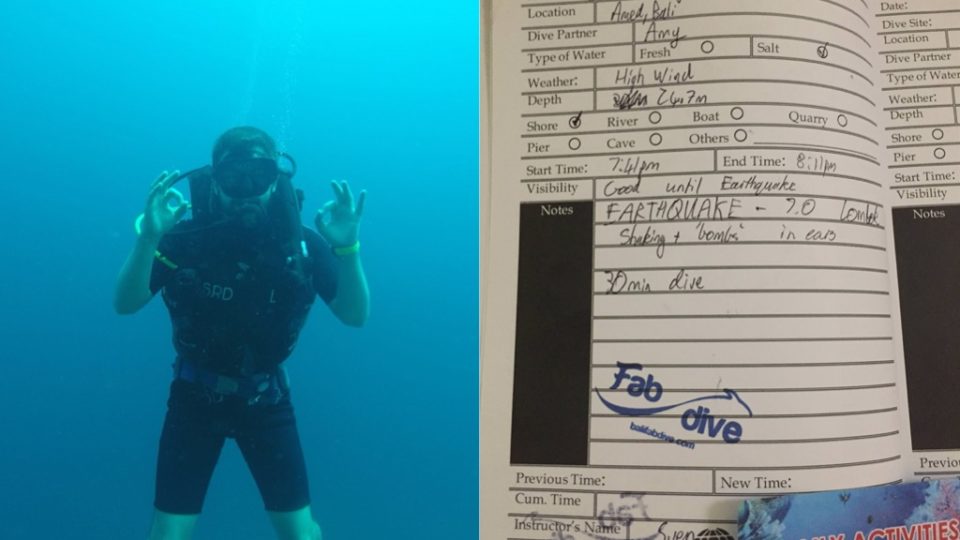 SRD L
Location Amed, Bali
Dive Partner Amy
Type of Water Fresh Salt
Weather: High Wind
Depth 26.7m
Shore River Boat Quarry
Pier Cave Others
Start Time: 7:41pm End Time: 8:11pm
Visibility Good until Earthquake
Notes EARTHQUAKE - 7.0 Lombok
Shaking + 'bombs' in ears
30min dive
Fab
dive
balifabdive.com
Previous Time: New Time:
Cum. Time
Instructor's Name Sven
Date:
Dive Site:
Location
Dive Partner
Type of Water
Weather:
Depth
Shore
Pier
Start Time:
Visibility
Notes
Previou
ACTIVITIES